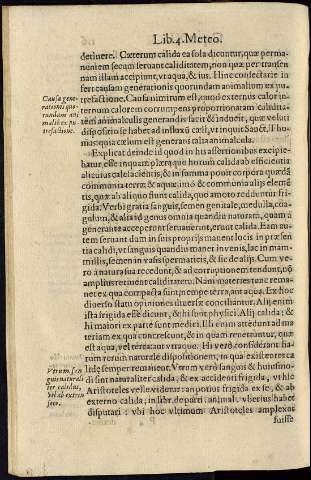 Lib.4. Meteō.
detinere. Cæterum calida ea sola dicuntur, quæ perma-
nentem secum seruant caliditatem, non quæ per transen-
nam illam accipiunt, vt aqua, & ius. Hinc consectarie in-
fert causam generationis quorundam animalium ex pu-
trefactione. Causa nimirum est, quòd externus calor in-
ternum calorem corrumpens
tem animalculis generandis facit & inducit, quæ veluti
dispositio se habet ad influxū cœli, vt inquit Sanct. Tho-
mas quia cælum est generans talia animalcula.
Causa gene-
rationis quo-
rundam ani-
maliū ex pu-
trefactione.
Explicat deinde id quod in his assertionibus excipie-
bat, esse inquam plæraque horum calida ab efficientia
alicuius calefacientis, & in summa ponit corpora quædā
communia terræ & aquæ, aut & communia alijs elemē-
tis, quæ ab aliquo fiunt calida, quo amoto redduntur fri-
gida. Verbi gratia sanguis, semen genitale, medulla, coa-
gulum, & alia id genus omnia quandiu naturam, quam à
generante acceperunt seruauerint, erunt calida. Eam au-
tem seruant dum in suis proprijs manent locis in præsen-
tia calidi, vt sanguis quandiu manet in venis, lac in mam-
millis, semen in vasis spermaticis, & sic de alijs. Cum ve-
ro à natura sua recedunt, & ad corruptionem tendunt, nō
amplius retinent caliditatem. Nam materies tunc rema-
net ex qua compacta sunt, nempe terra, aut aqua. Ex hoc
diuerso statu opiniones diuersæ conciliantur. Alij enim
ista frigida esse dicunt, & hi sunt physici. Alij calida; &
hi maiori ex parte sunt medici. Illi enim attendunt ad ma
teriam ex qua concrescunt, & in quam renertuntur, quæ
est aqua, vel terra: aut vtraque. Hi verò considerant ha-
rum rerum naturale dispositionem, in qua existentes ca
lidę semper remanent. Vtrum verò sangui & huiusmo-
di sint naturaliter calida, & ex accidenti frigida, vt hic
Aristoteles vel è vide potius frigida ex se, & ab
externo calido; in libr. de parti. animal. vberius habet
disputari: vbi hoc vltimum Aristoteles amplexus
Vtrum san-
guis naturali
ter calidus,
vel ab extrin
seco.
fuisse